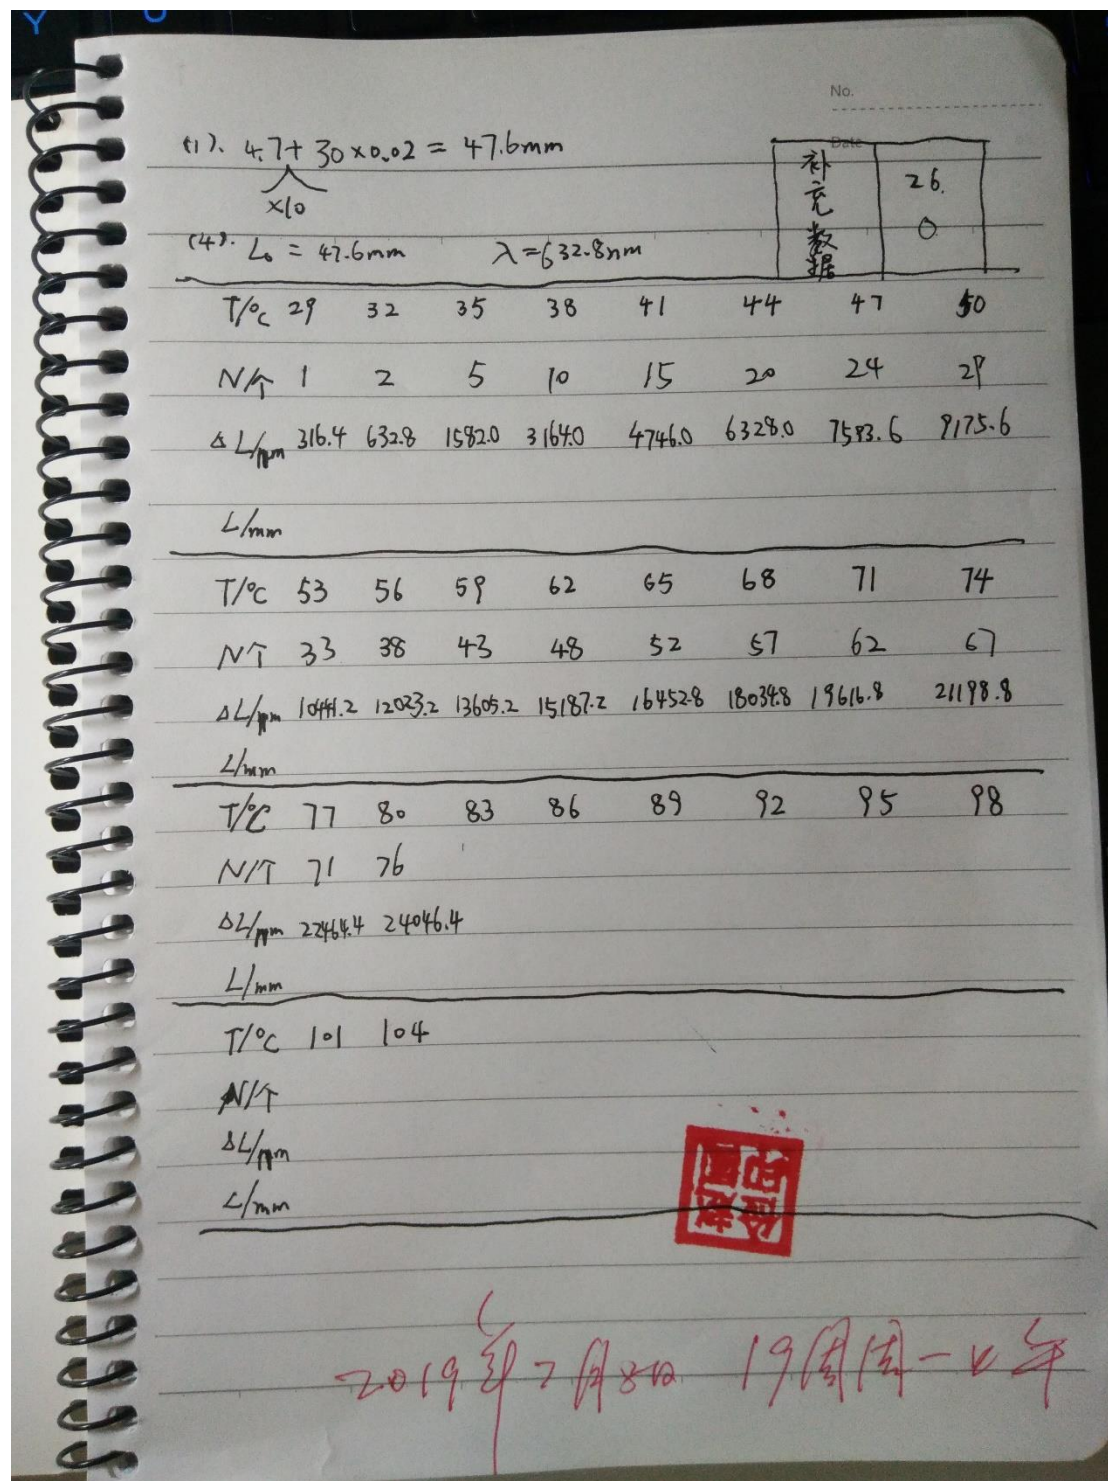 No.
Date
(1). 4.7+30×0.02 = 47.6mm
×10
补充数据 26. 0
(4). L₀ = 47.6mm λ=632.8nm
T/°C 29 32 35 38 41 44 47 50
N/个 1 2 5 10 15 20 24 29
ΔL/nm 316.4 632.8 1582.0 3164.0 4746.0 6328.0 7593.6 9175.6
L/mm
T/°C 53 56 59 62 65 68 71 74
N/个 33 38 43 48 52 57 62 67
ΔL/nm 10441.2 12023.2 13605.2 15187.2 16452.8 18034.8 19616.8 21198.8
L/mm
T/°C 77 80 83 86 89 92 95 98
N/个 71 76
ΔL/nm 22464.4 24046.4
L/mm
T/°C 101 104
N/个
ΔL/nm
L/mm
2019年7月8日 19周周一